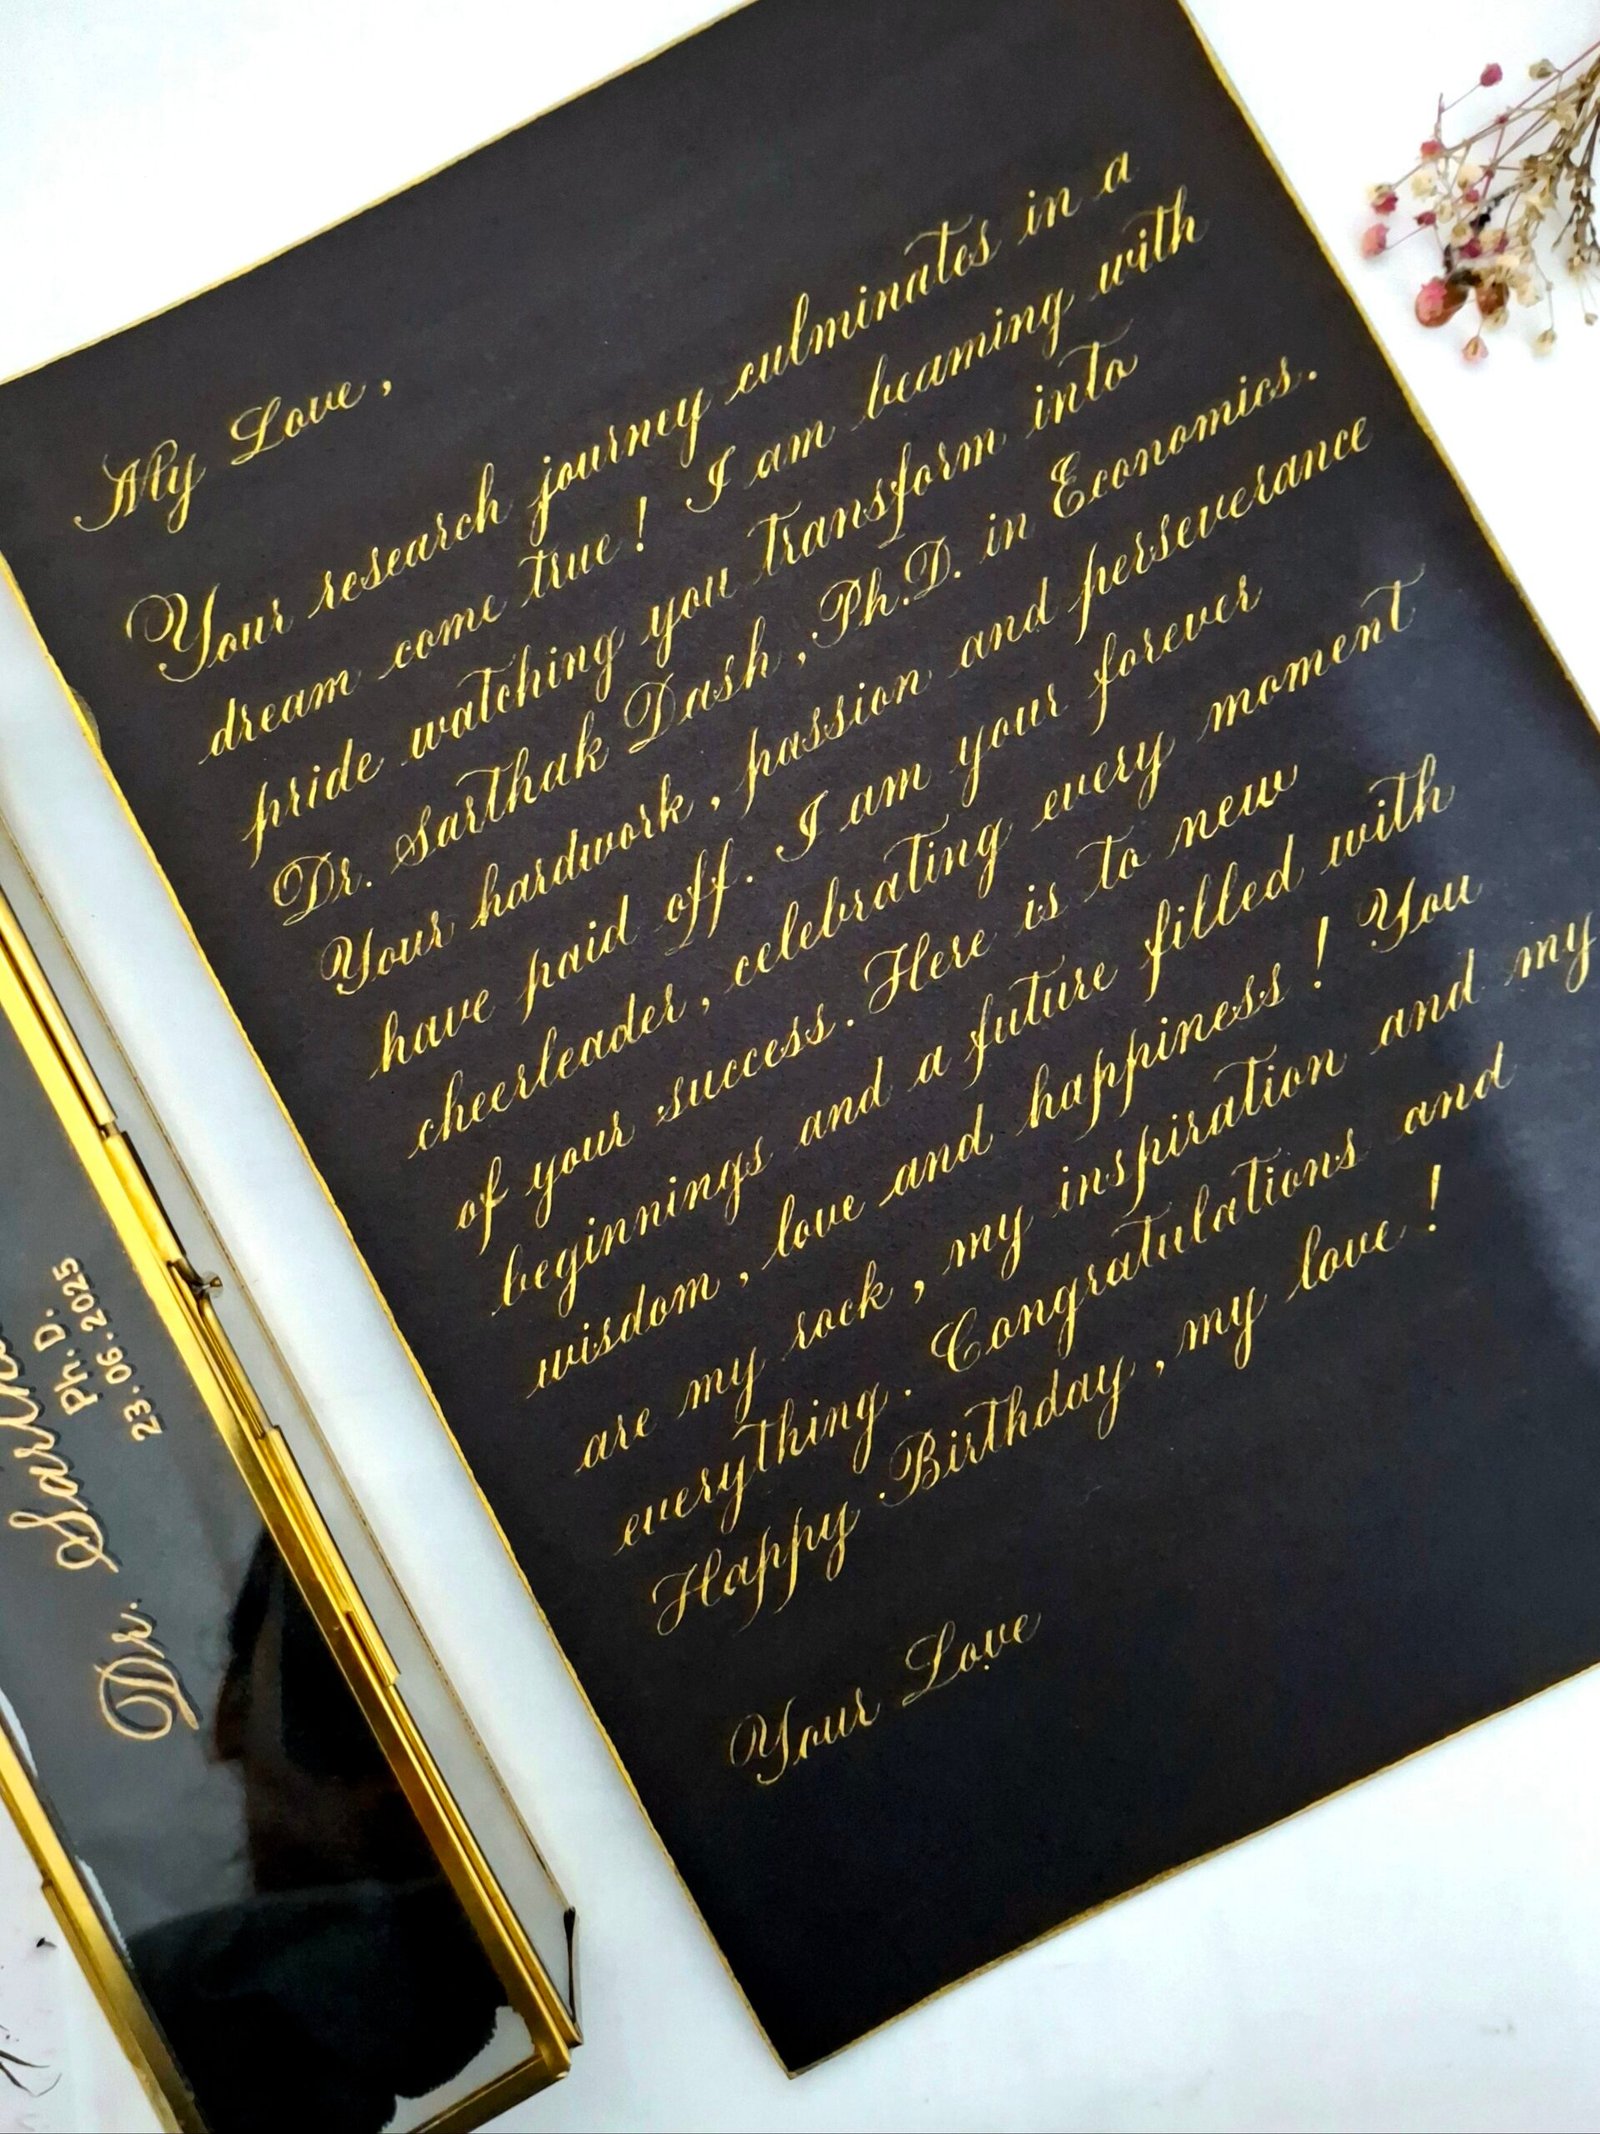 My Love,
Your research journey culminates in a
dream come true! I am beaming with
pride watching you transform into
Dr. Sarthak Dash, Ph.D. in Economics.
Your hardwork, passion and perseverance
have paid off. I am your forever
cheerleader, celebrating every moment
of your success. Here is to new
beginnings and a future filled with
wisdom, love and happiness! You
are my rock, my inspiration and my
everything. Congratulations and
Happy Birthday, my love!
Your Love
Dr.
Ph.D.
23.06.2025